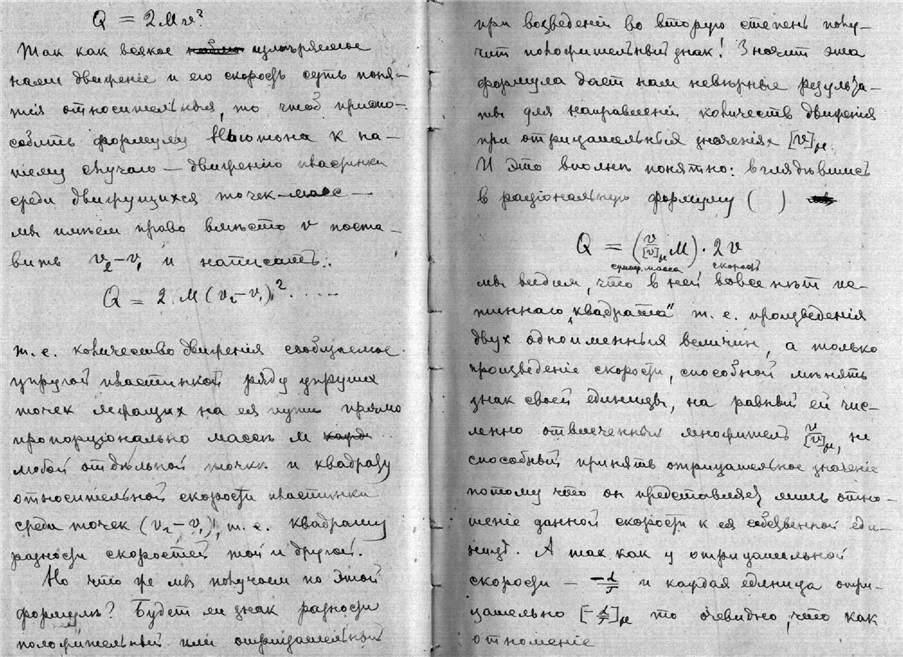 Q = 2Mv²
Такъ какъ всякое измѣряемое
нами движеніе и его скорость суть поня-
тія относительныя, то чтобъ приспо-
собить формулу Ньютона къ на-
шему случаю — движенію пластинки
среди движущихся точек
мы имѣемъ право вмѣсто v поста-
вить v₂–v₁ и написать:
Q = 2 M (v₂–v₁)² . . . . .
т. е. количество движенія сообщаемое
упругой пластинкой ряду упругихъ
точек лежащихъ на ея пути прямо
пропорціонально массѣ M
любой отдѣльной точки и квадрату
относительной скорости пластинки
среди точек (v₂–v₁)², т. е. квадрату
разности скоростей той и другой.
Но что же мы получаемъ по этой
формулѣ? Будет ли знак разности
положительный или отрицательный
при возведеніи во вторую степень полу-
чит положительный знак! Значит эта
формула дает нам невѣрные результа-
ты для направленій количеств движенія
при отрицательных значеніях [v]μ.
И это вполнѣ понятно: вглядѣвшись
в раціональную формулу ( )
Q = (v/[v]μ M) · 2v
масса скорость
мы видим что в ней вовсе нѣт ис-
тиннаго „квадрата" т. е. произведенія
двух одноименных величин, а только
произведеніе скорости, способной мѣнять
знак своей единицы, на равный ей чис-
ленно отвлеченный множитель v/[v]μ, не
способный принять отрицательное значеніе
потому что он представляет лишь отно-
шеніе данной скорости к ея собственной еди-
ницѣ. А так как у отрицательной
скорости – и каждая единица отри-
цательно то очевидно, что как
отношеніе